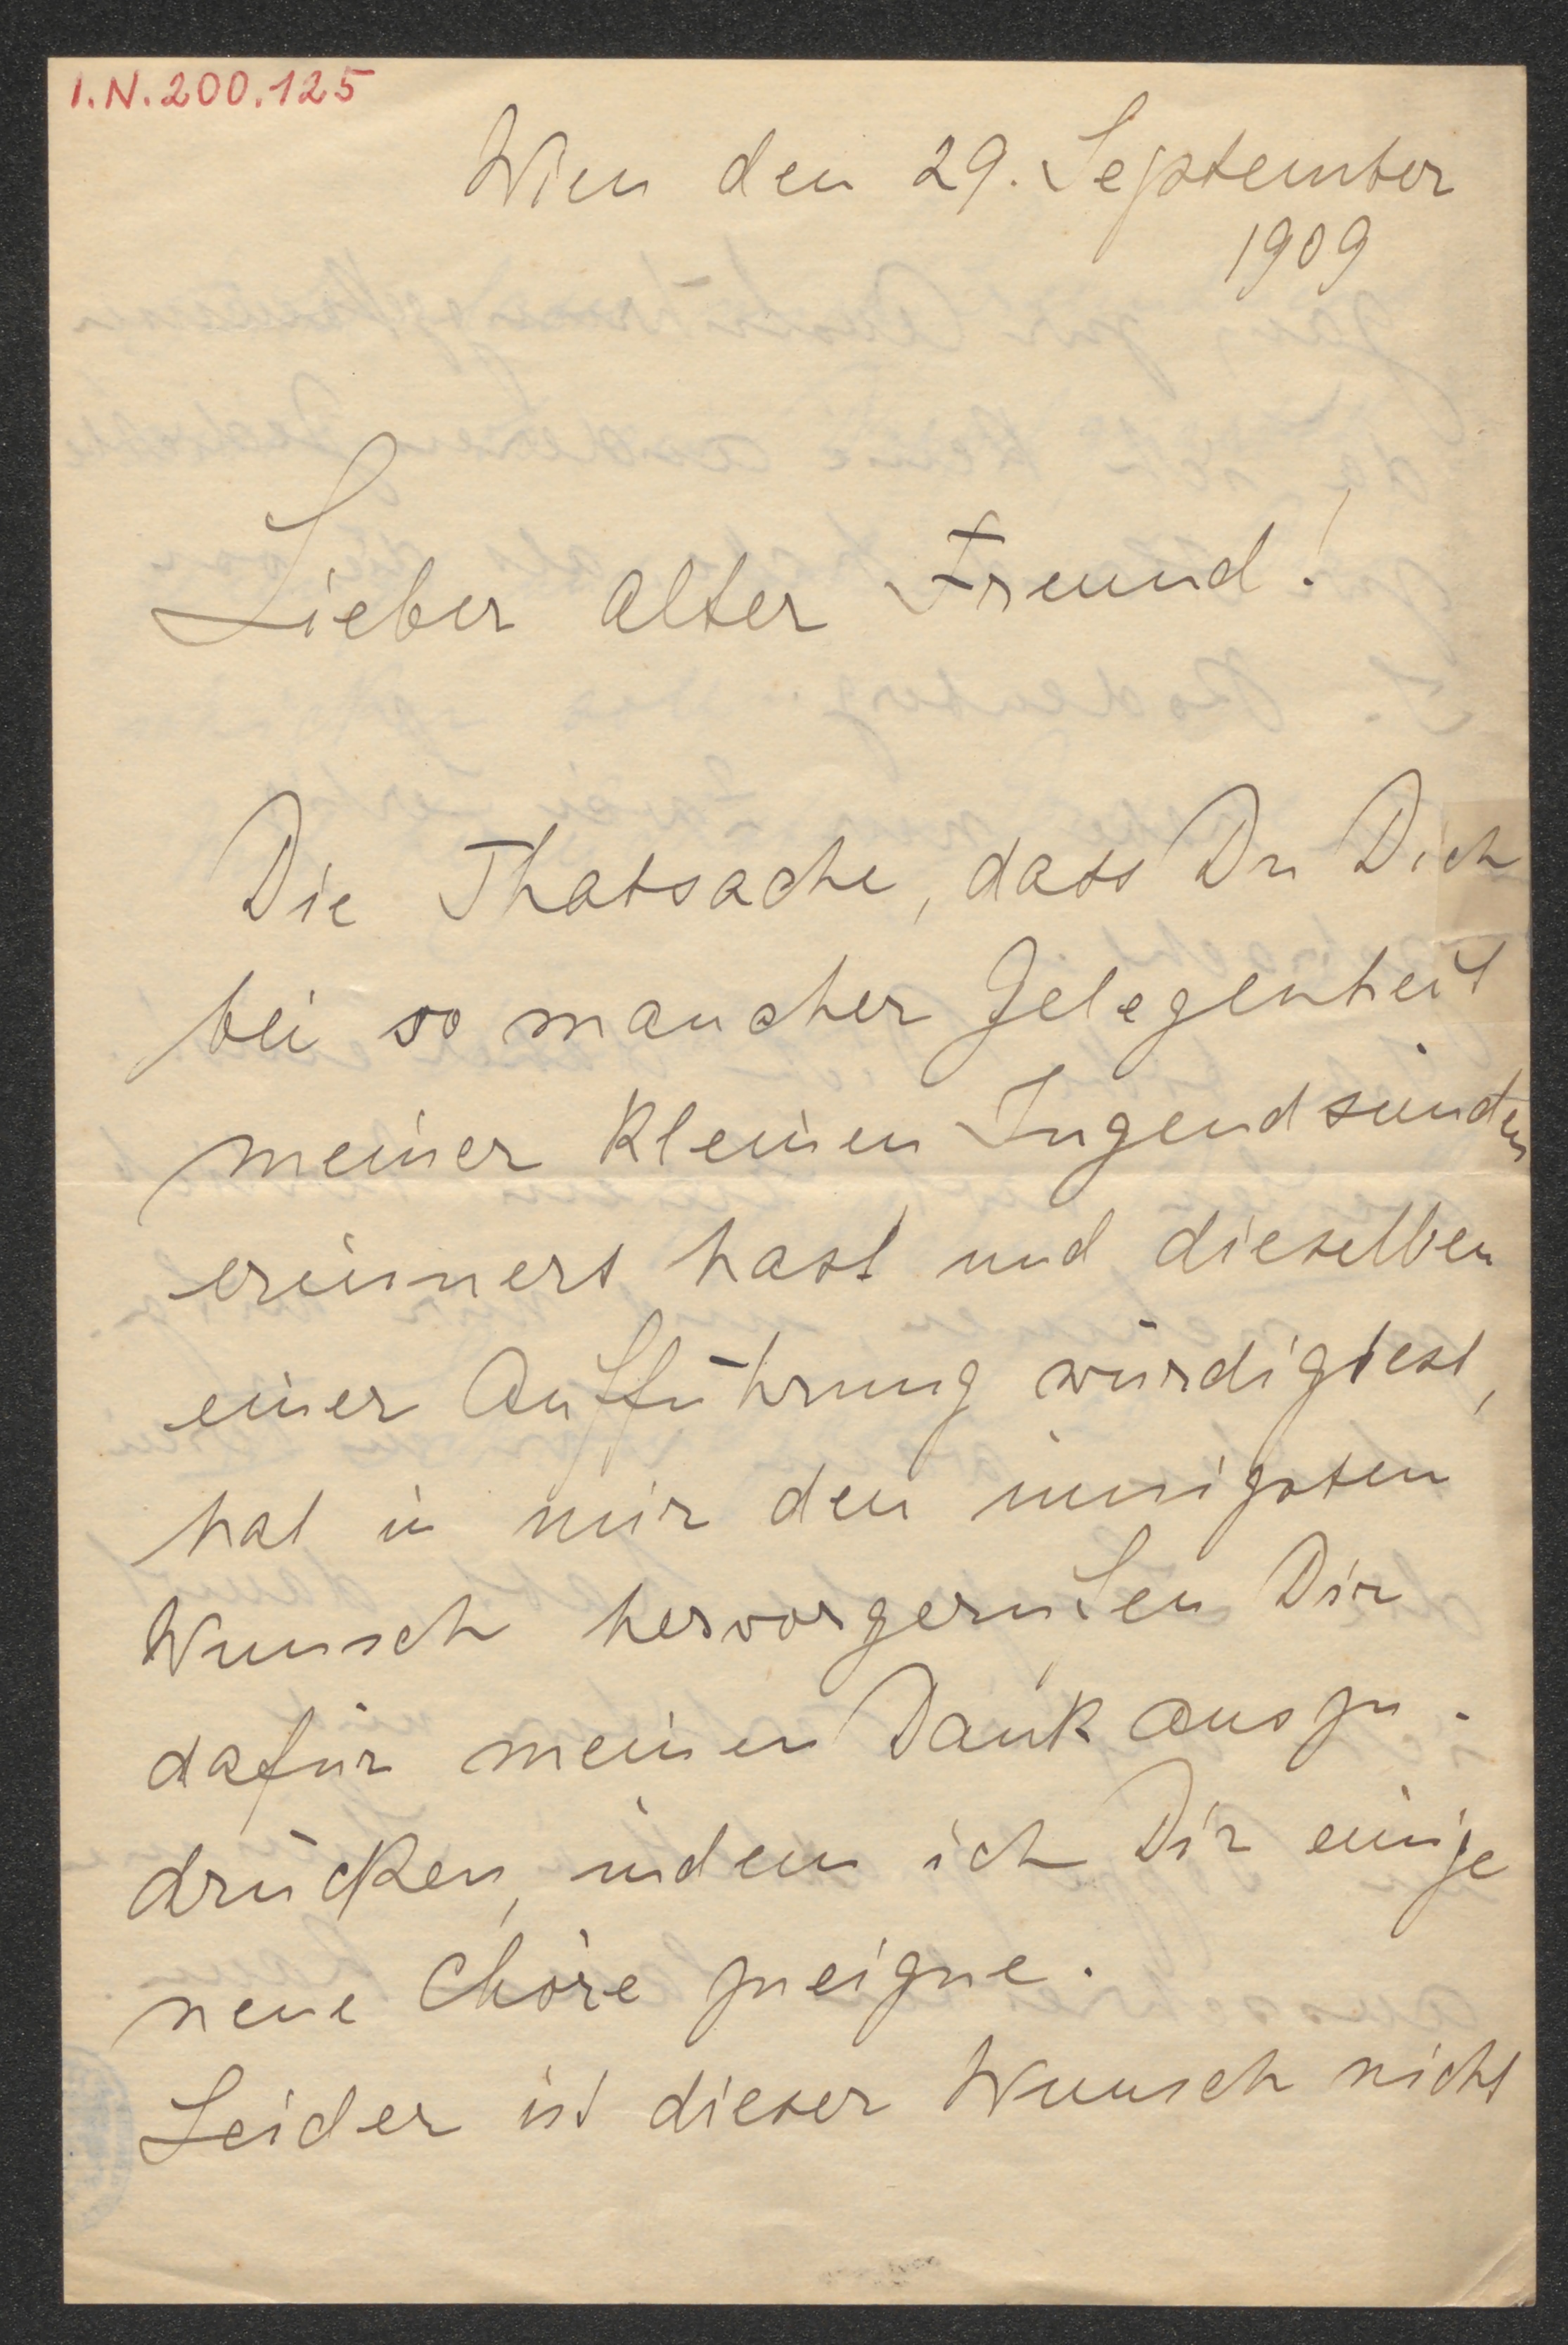 I.N.200.125
Wien den 29. September
1909
Lieber alter Freund!
Die Thatsache, dass Du Dich
bei so mancher Gelegenheit
meiner kleinen Jugendsünden
erinnert hast und dieselben
einer Aufführung würdigtest,
hat in mir den innigsten
Wunsch hervorgerufen Dir
dafür meinen Dank auszu-
drücken, indem ich Dir einige
neue Chöre zueigne.
Leider ist dieser Wunsch nicht